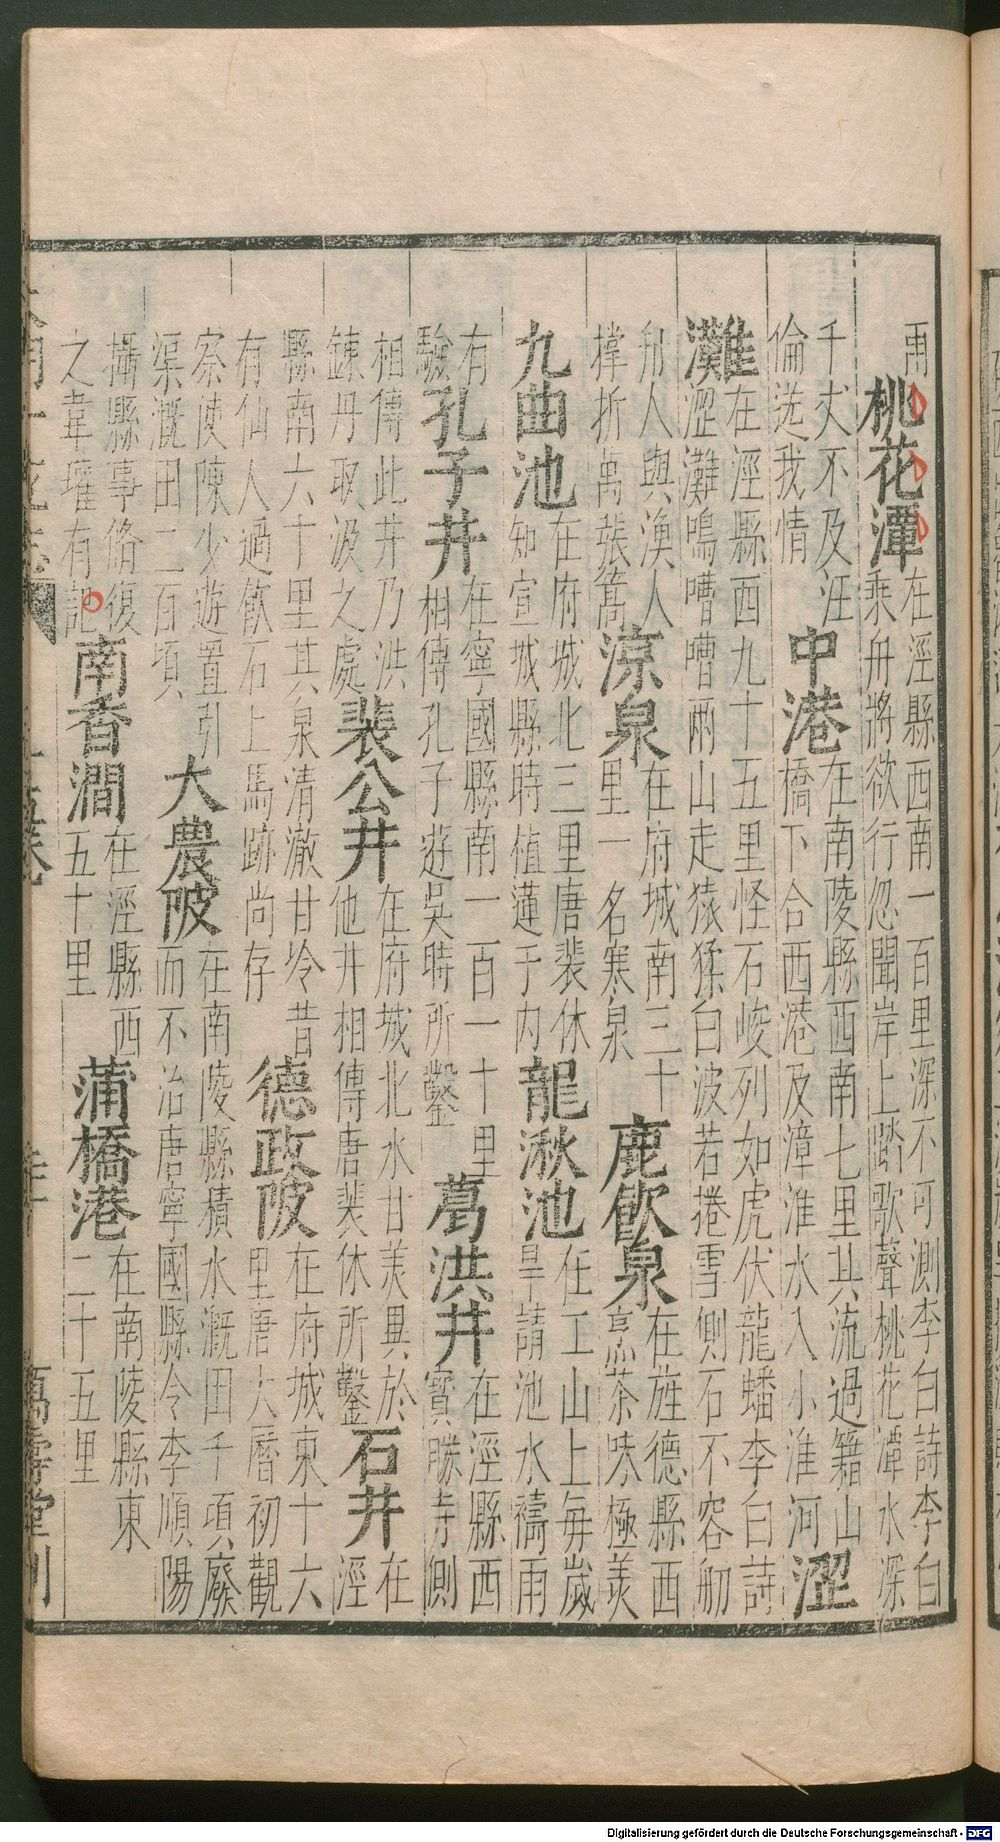 雨桃花潭在涇縣西南一百里深不可測李白詩李白
乘舟將欲行忽聞岸上踏歌聲桃花潭水深
千丈不及汪
倫送我情
中港在南陵縣西南七里其流過籍山
橋下合西港及漳淮水入小淮河
澀
灘在涇縣西九十五里怪石峻列如虎伏龍蟠李白詩
澀灘鳴嘈嘈兩山走猿猱白波若捲雪側石不容舠
郍人與漁人
撑折萬張篙
涼泉在府城南三十
里一名寒泉
鹿飲泉在旌德縣西
烹茶味極美
九曲池在府城北三里唐裴休
知宣城縣時植蓮于内
龍湫池在工山上每歲
旱請池水禱雨
有
驗
孔子井在寧國縣南一百一十里
相傳孔子遊吳時所鑿
葛洪井在涇縣西
寶勝寺側
相傳此井乃洪
鍊丹取汲之處
裴公井在府城北水甘美異於
他井相傳唐裴休所鑿
石井在
涇
縣南六十里其泉清澈甘冷昔
有仙人過飲石上馬跡尚存
德政陂在府城東十六
里唐大曆初觀
察使陳少遊置引
渠溉田二百頃
大農陂在南陵縣積水溉田千頃廢
而不治唐寧國縣令李順陽
攝縣事脩復
之韋瓘有記
南香澗在涇縣西
五十里
蒲橋港在南陵縣東
二十五里
萬壽堂刊
Digitalisierung gefördert durch die Deutsche Forschungsgemeinschaft - DFG